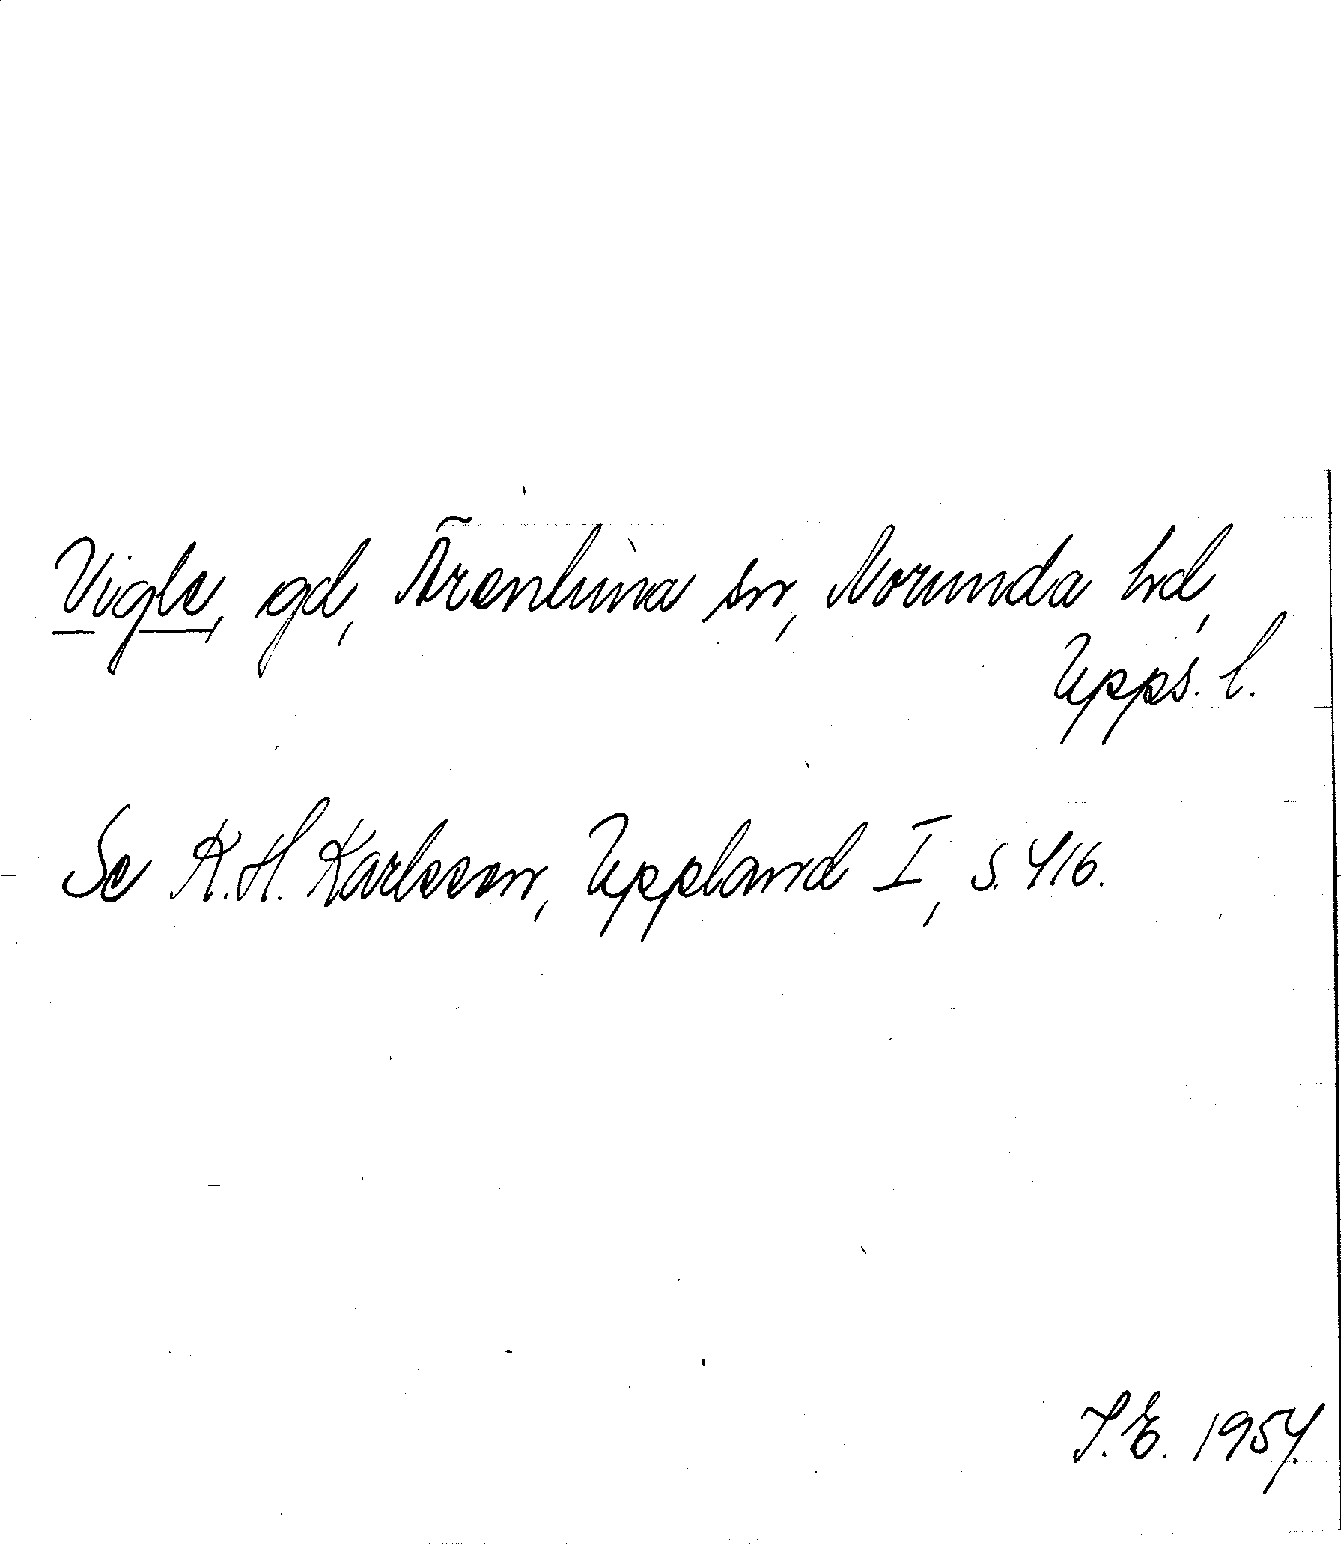 Vigle, gd, Ärentuna sn, Norunda hd,
Upps. l.
Se K.H. Karlsson, Uppland I, s. 416.
T.E. 1954.